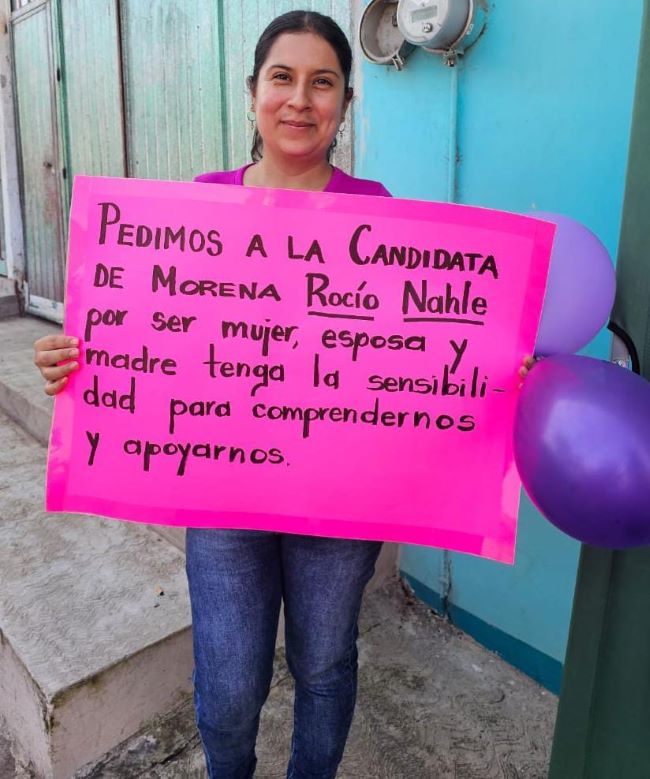 PEDIMOS A LA CANDIDATA
DE MORENA Rocío Nahle
por ser mujer, esposa y
madre tenga la sensibili-
dad para comprendernos
y apoyarnos.